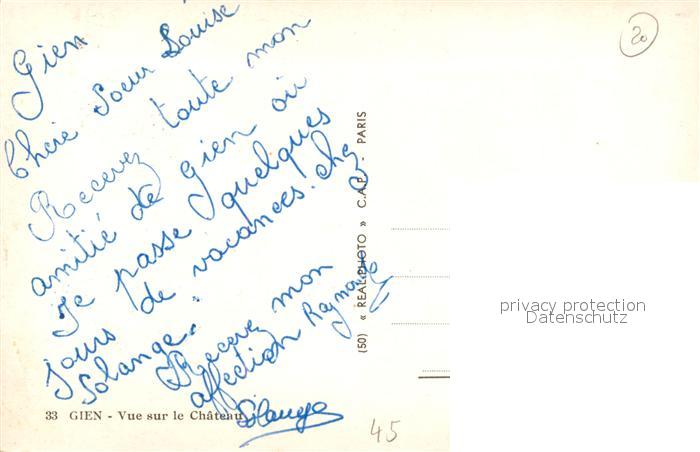 Gien
Chère Soeur Louise
Recevez toute mon
amitié de Gien où
je passe quelques
jours de vacances chez
Solange.
Recevez mon
affection Raymonde
Solange
33 GIEN - Vue sur le Château
(50) « REAL-PHOTO » C.A.P. - PARIS
20
45
privacy protection
Datenschutz